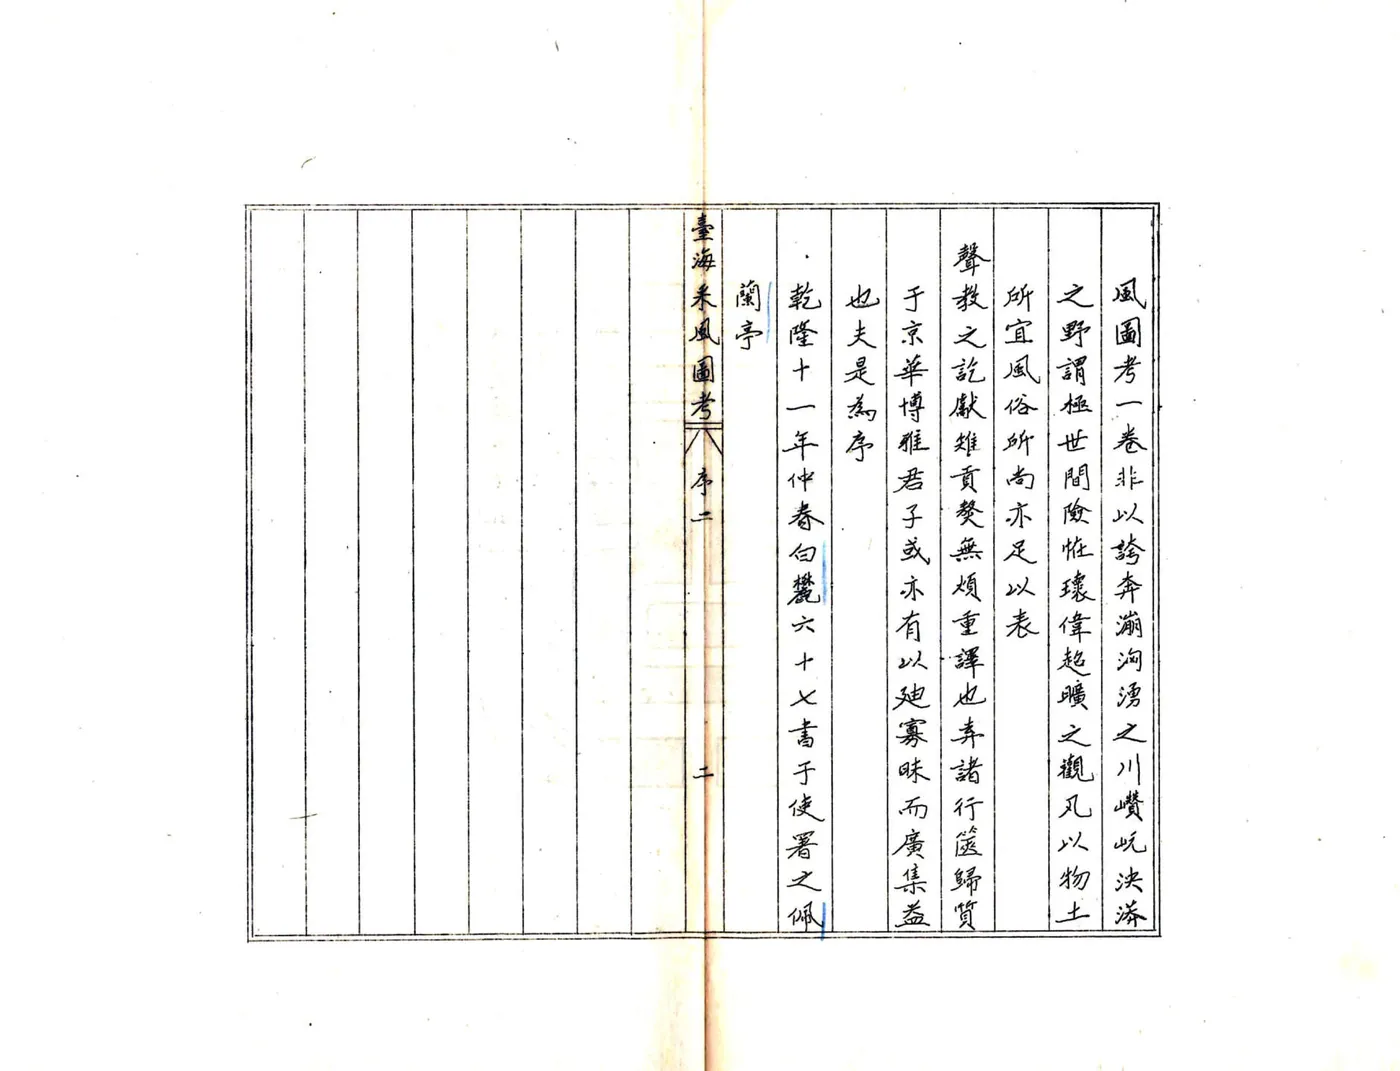 風圖考一卷非以誇奔漰洶湧之川巑岏泱漭
之野謂極世間險恠瓌偉超曠之觀凡以物土
所宜風俗所尚亦足以表
聲教之訖獻雉貢獒無煩重譯也弆諸行篋歸質
于京華博雅君子或亦有以廸寡昧而廣集益
也夫是為序
乾隆十一年仲春白麓六十七書于使署之佩
蘭亭
臺海采風圖考 序二 二